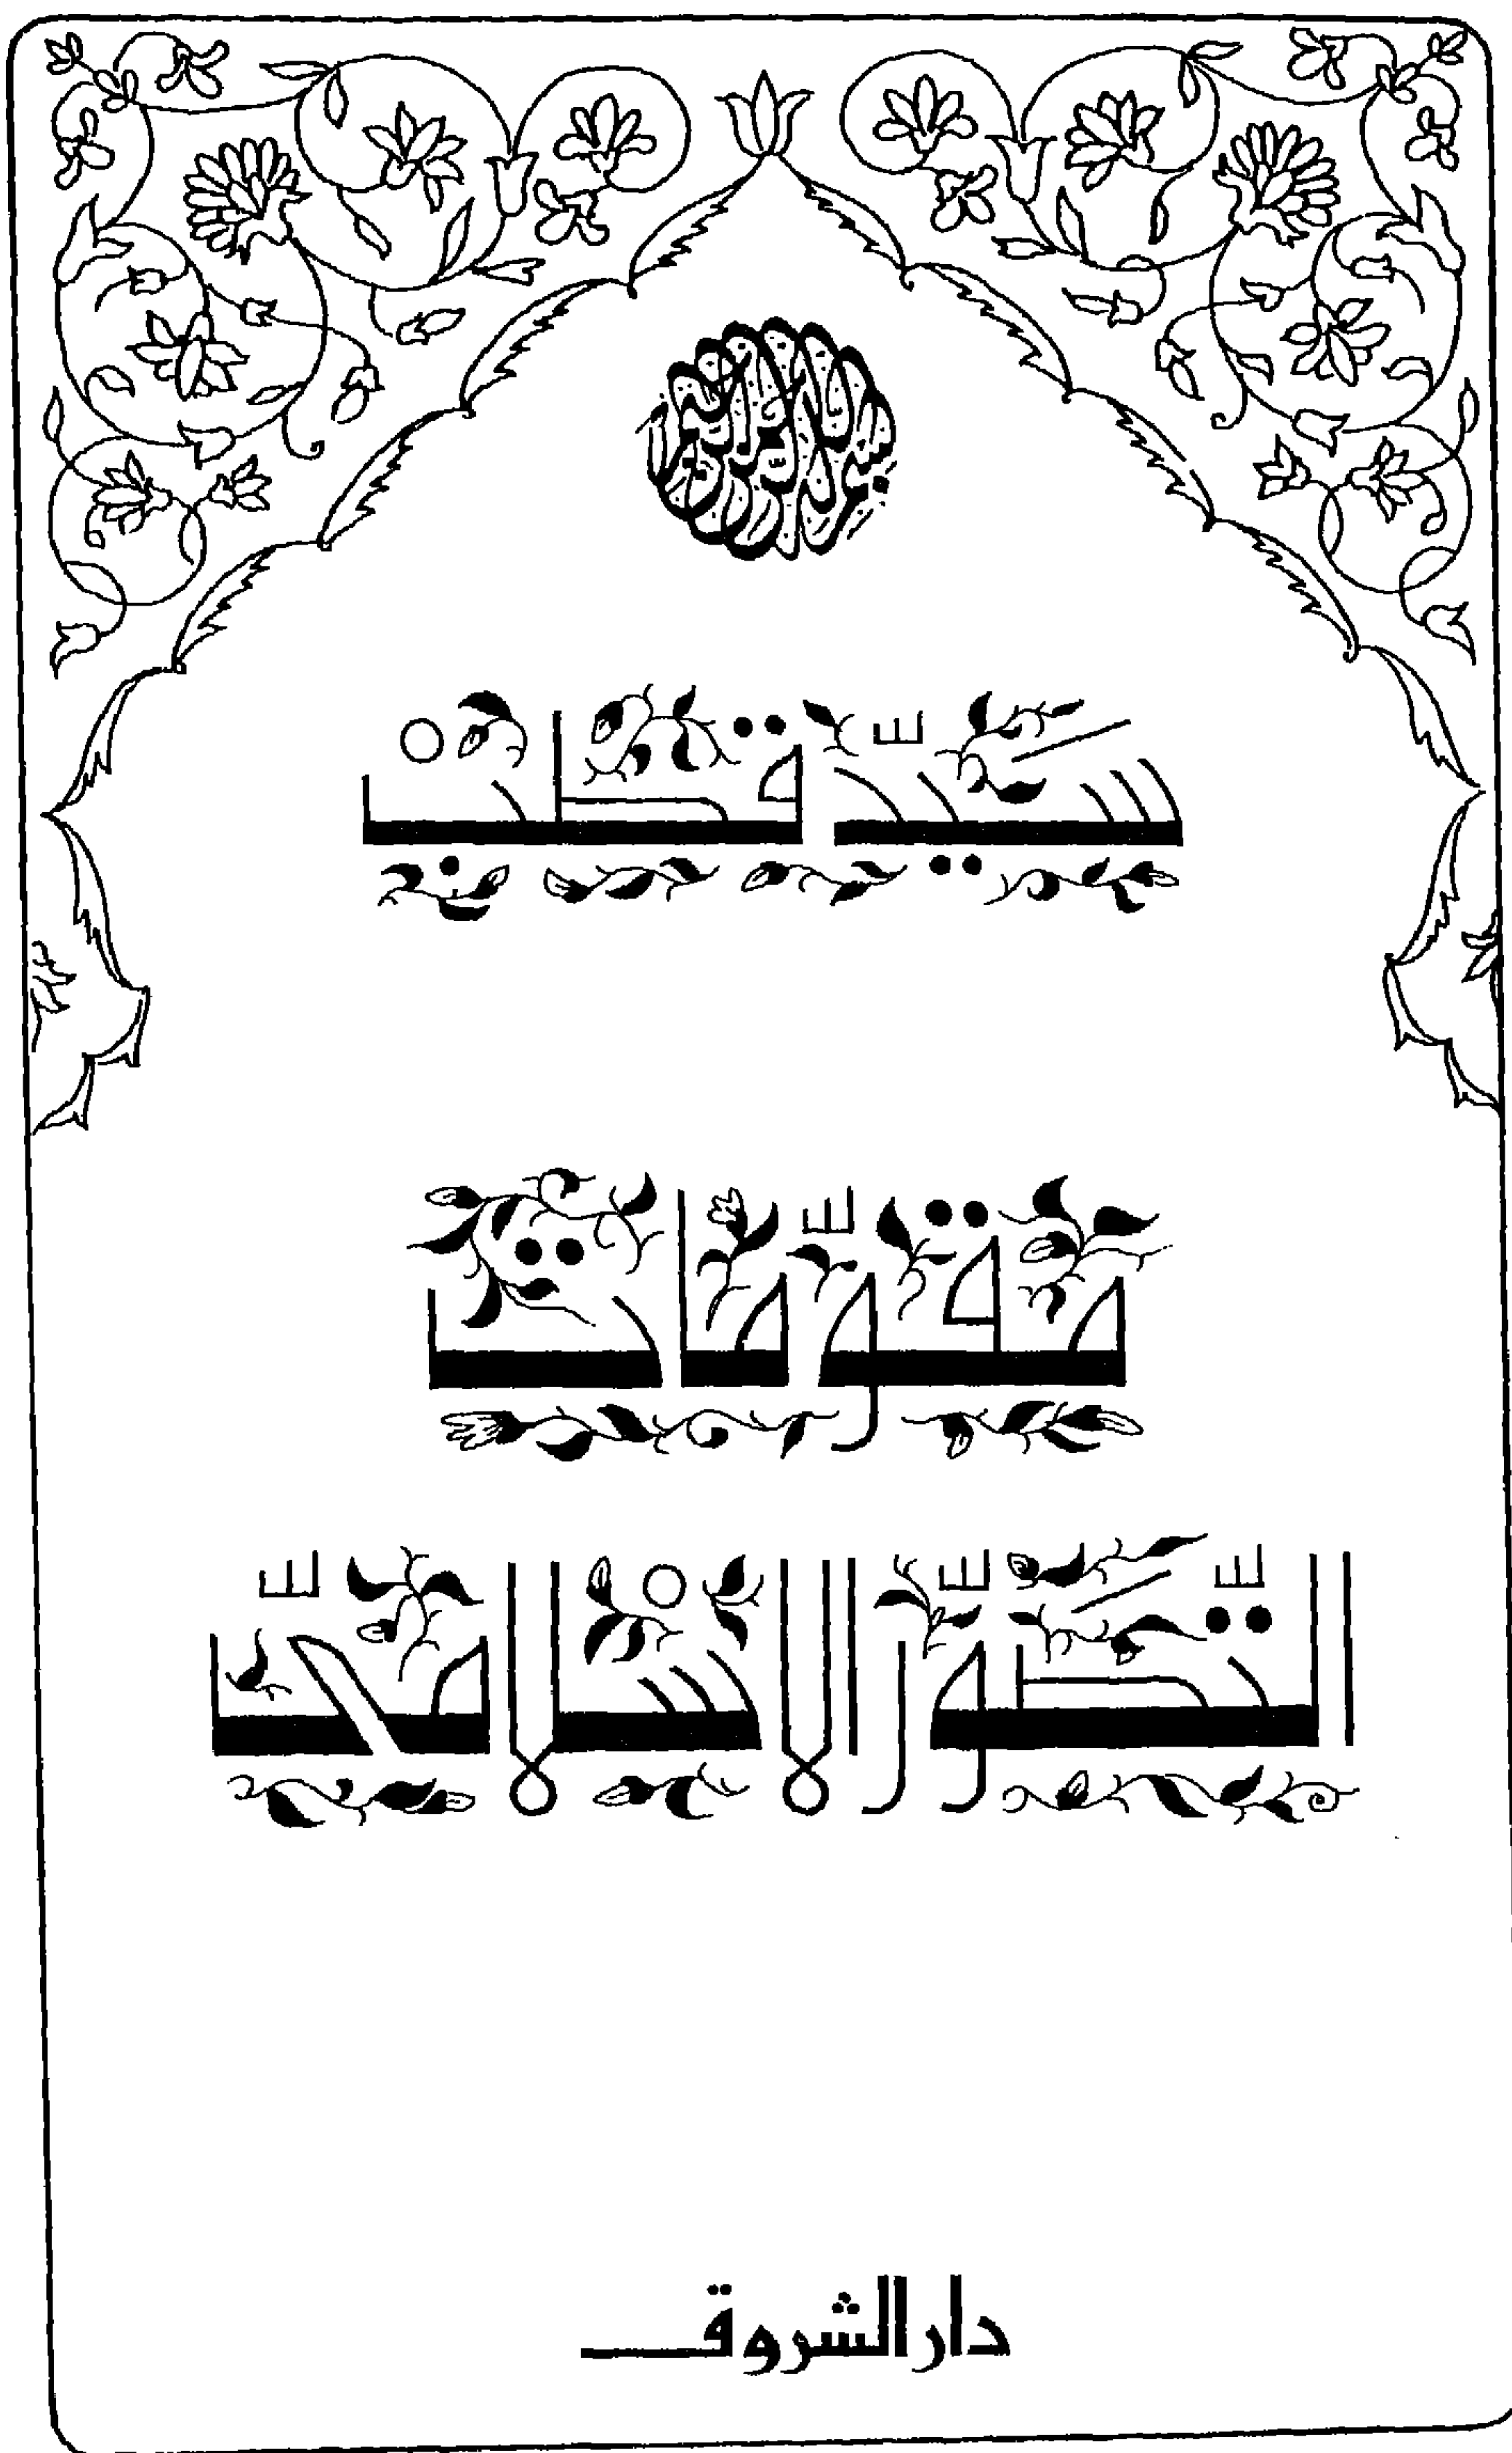 بسم الله الرحمن الرحيم
سَيّد قطبْ
مقوّمات
التّصَوّر الاسْلاميّ
دار الشروق